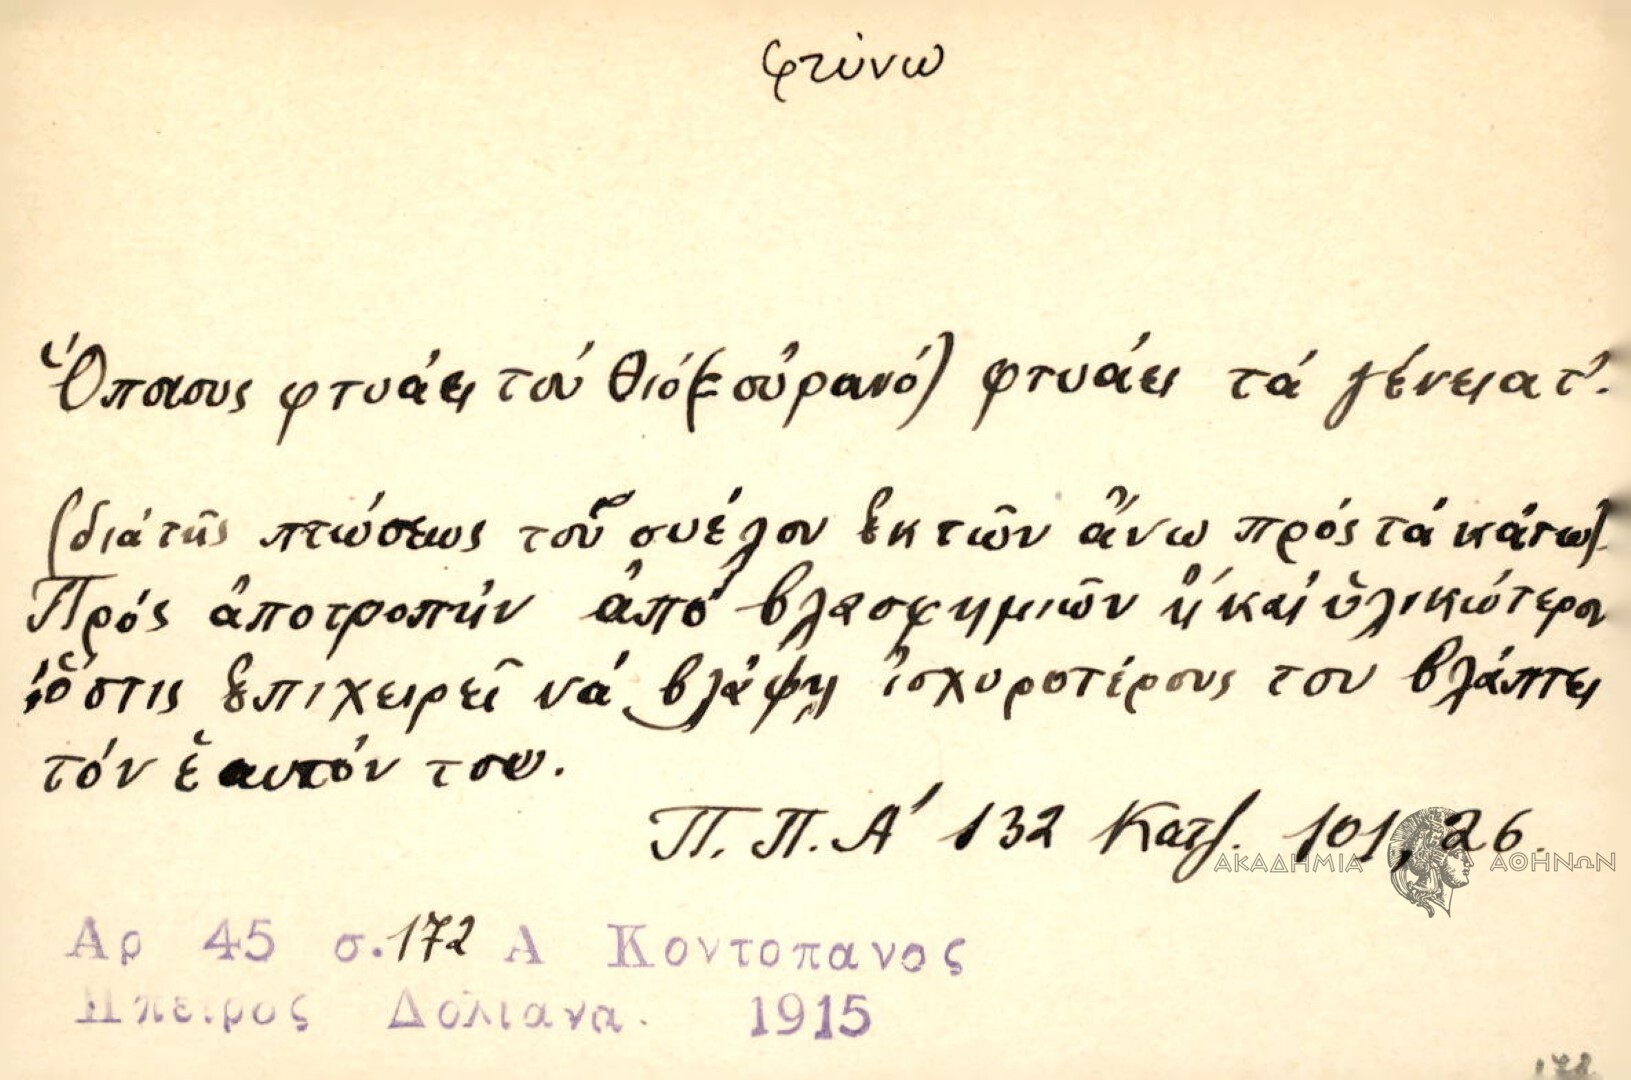 φτύνω
Ὅποιους φτυάει τού θιό(=οὐρανό) φτυάει τά γένεια τ'.
(διά τῆς πτώσεως τοῦ σιέλου ἐκ τῶν ἄνω πρός τά κάτω).
Πρός ἀποτροπήν ἀπό βλασφημιῶν ἤ καί ὑλικώτερον
:ὅστις ἐπιχειρεῖ νά βλάψῃ ἰσχυροτέρους του βλάπτει
τόν ἑαυτόν του.
Π. Π. Α' 132 Κατζ. 101, 26.
ΑΚΑΔΗΜΙΑ ΑΘΗΝΩΝ
Αρ 45 σ. 172 Α Κοντοπανος
Ηπειρος Δολιανα. 1915
172